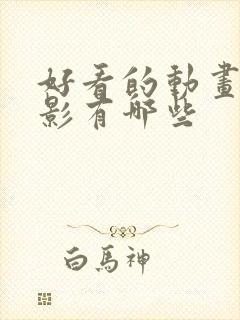 好看的動畫
影有哪些
白馬神